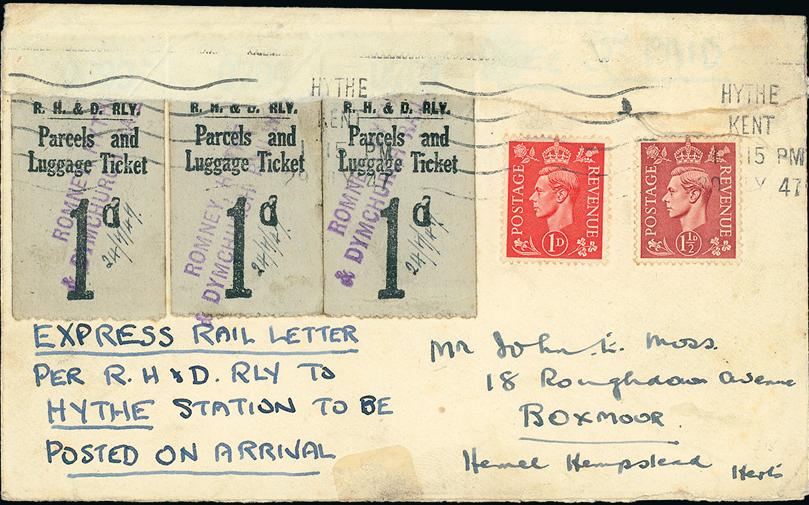 HYTHE
KENT
HYTHE
KENT
15 PM
47
R. H. & D. RLY.
Parcels and
Luggage Ticket
1d
ROMNEY
& DYMCHURCH
24/4/47
R. H. & D. RLY.
Parcels and
Luggage Ticket
1d
ROMNEY
& DYMCHURCH
24/4/47
R. H. & D. RLY.
Parcels and
Luggage Ticket
1d
ROMNEY
& DYMCHURCH
24/4/47
POSTAGE REVENUE
1D
POSTAGE REVENUE
1½D
EXPRESS RAIL LETTER
PER R.H & D. RLY TO
HYTHE STATION TO BE
POSTED ON ARRIVAL
Mr John E. Moss
18 Roughdown Avenue
BOXMOOR
Hemel Hempstead Herts